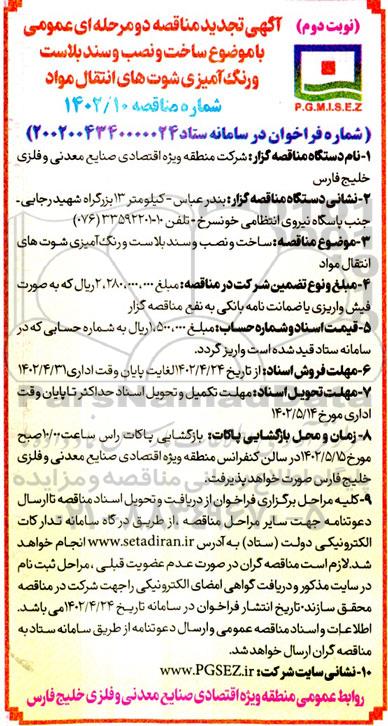 (نوبت دوم)
آگهی تجدید مناقصه دو مرحله ای عمومی
با موضوع ساخت و نصب و سندبلاست
و رنگ آمیزی شوت های انتقال مواد
شماره مناقصه ۱۴۰۲/۱۰
P.G.M.I.S.E.Z
(شماره فراخوان در سامانه ستاد ۲۰۰۲۰۰۴۳۴۰۰۰۰۰۲۴)
۱-نام دستگاه مناقصه گزار: شرکت منطقه ویژه اقتصادی صنایع معدنی و فلزی
خلیج فارس
۲-نشانی دستگاه مناقصه گزار: بندرعباس - کیلومتر ۱۳ بزرگراه شهید رجایی-
جنب پاسگاه نیروی انتظامی خونسرخ - تلفن ۱۰-۳۳۵۹۲۲۰۱ (۰۷۶)
۳-موضوع مناقصه: ساخت و نصب و سندبلاست و رنگ آمیزی شوت های
انتقال مواد
۴-مبلغ و نوع تضمین شرکت در مناقصه: مبلغ ۲.۲۸۰.۰۰۰.۰۰۰ ریال که به صورت
فیش واریزی یا ضمانت نامه بانکی به نفع مناقصه گزار
۵-قیمت اسناد و شماره حساب: مبلغ ۱.۵۰۰.۰۰۰ ریال به شماره حسابی که در
سامانه ستاد قید شده است واریز گردد.
۶-مهلت فروش اسناد: از تاریخ ۱۴۰۲/۴/۲۴ لغایت پایان وقت اداری ۱۴۰۲/۴/۳۱
۷-مهلت تحویل اسناد: مهلت تکمیل و تحویل اسناد حداکثر تا پایان وقت
اداری مورخ ۱۴۰۲/۵/۱۴
۸-زمان و محل بازگشایی پاکات: بازگشایی پاکات راس ساعت ۱۰/۰۰ صبح
مورخ ۱۴۰۲/۵/۱۵ در سالن کنفرانس منطقه ویژه اقتصادی صنایع معدنی و فلزی
خلیج فارس صورت خواهد پذیرفت.
۹-کلیه مراحل برگزاری فراخوان از دریافت و تحویل اسناد مناقصه تا ارسال
دعوتنامه جهت سایر مراحل مناقصه، از طریق درگاه سامانه تدارکات
الکترونیکی دولت (ستاد) به آدرس www.setadiran.ir انجام خواهد
شد. لازم است مناقصه گران در صورت عدم عضویت قبلی، مراحل ثبت نام
در سایت مذکور و دریافت گواهی امضای الکترونیکی را جهت شرکت در مناقصه
محقق سازند. تاریخ انتشار فراخوان در سامانه تاریخ ۱۴۰۲/۴/۲۴ می باشد.
اطلاعات و اسناد مناقصه عمومی و ارسال دعوتنامه از طریق سامانه ستاد به
مناقصه گران ارسال خواهد شد.
۱۰-نشانی سایت شرکت: www.PGSEZ.ir
روابط عمومی منطقه ویژه اقتصادی صنایع معدنی و فلزی خلیج فارس